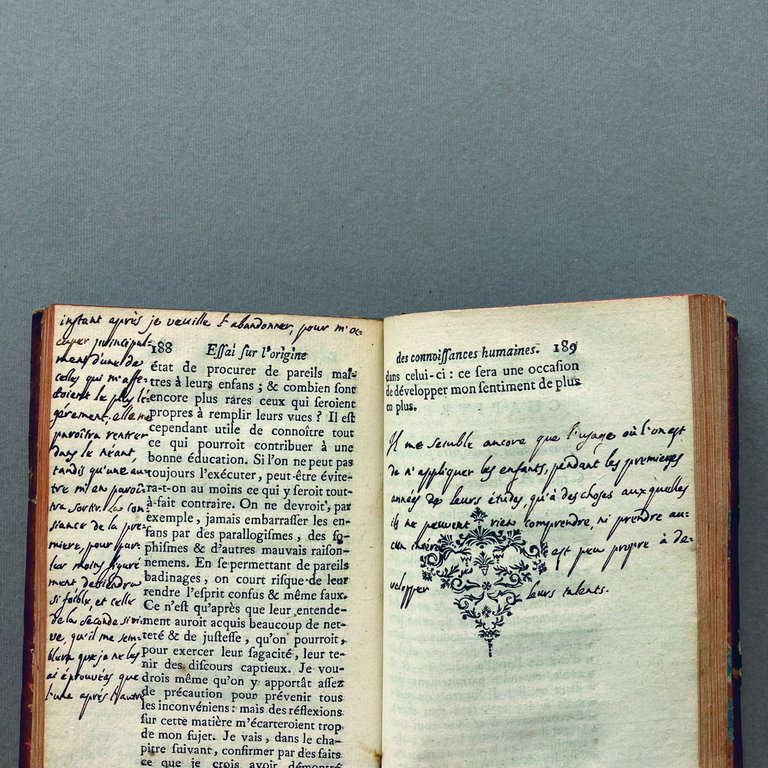 instant après je veuille l'abandonner, pour m'oc-
cuper principal-
ment d'une de
celles qui m'affe-
ctoient le plus lé-
gérement, elle me
paroîtra rentrer
dans le néant,
tandis qu'une au-
tre m'en paroî-
tra sortir. La con
sciance de la pre-
miere, pour par-
ler moins figuré
ment deviendra
si foible, et celle
de la seconde si vi-
ve, qu'il me sem-
blera que je ne les
ai éprouvées que
l'une après l'autre
188 Essai sur l'origine
état de procurer de pareils maî-
tres à leurs enfans ; & combien sont
encore plus rares ceux qui seroient
propres à remplir leurs vues ? Il est
cependant utile de connoître tout
ce qui pourroit contribuer à une
bonne éducation. Si l'on ne peut pas
toujours l'exécuter, peut-être évite-
ra-t-on au moins ce qui y seroit tout-
à-fait contraire. On ne devroit, par
exemple, jamais embarrasser les en-
fans par des paralogismes, des so-
phismes & d'autres mauvais raison-
nemens. En se permettant de pareils
badinages, on court risque de leur
rendre l'esprit confus & même faux.
Ce n'est qu'après que leur entende-
ment auroit acquis beaucoup de net-
teté & de justesse, qu'on pourroit,
pour exercer leur sagacité, leur te-
nir des discours captieux. Je vou-
drois même qu'on y apportât assez
de précaution pour prévenir tous
les inconvéniens : mais des réflexions
sur cette matière m'écarteroient trop
de mon sujet. Je vais, dans le cha-
pitre suivant, confirmer par des faits
ce que je crois avoir démontré
des connoissances humaines. 189
dans celui-ci : ce sera une occasion
de développer mon sentiment de plus
en plus.
Il me semble encore que l'usage où l'on est
de n'appliquer les enfants, pendant les premieres
années de leurs études, qu'à des choses auxquelles
ils ne peuvent rien comprendre, ni prendre au-
cun intérêt est peu propre à dé-
velopper leurs talents.